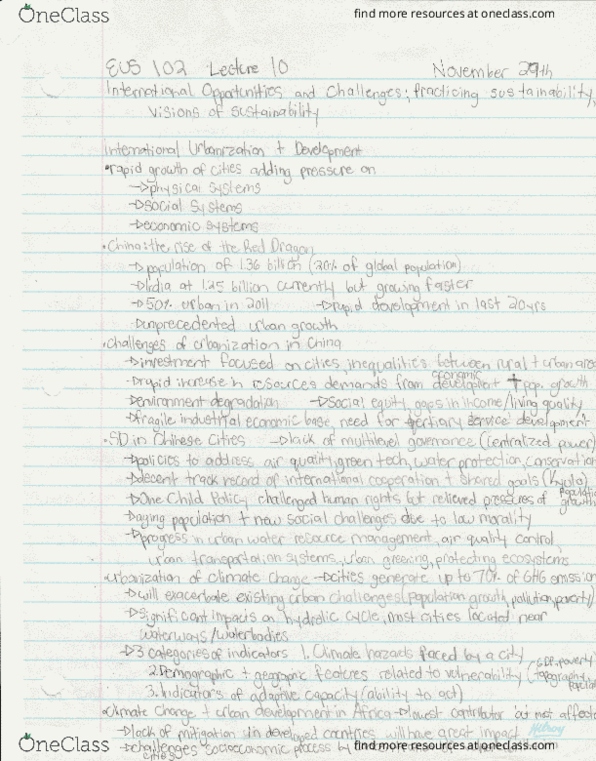 OneClass
find more resources at oneclass.com
EUS 102 Lecture 10 November 29th
International Opportunities and Challenges; Practicing sustainability,
Visions of sustainability
International Urbanization + Development
•rapid growth of cities adding pressure on
→physical systems
→social systems
→economic systems
•China: the rise of the Red Dragon
→population of 1.36 billion (20% of global population)
→India at 1.25 billion currently but growing faster
→50% urban in 2011 →rapid development in last 20yrs
→unprecedented urban growth
•Challenges of urbanization in China
→investment focused on cities, inequalities between rural + urban areas
→rapid increase in resources demands from economic development + pop. growth
→environment degradation →social equity, gaps in income/living quality
→fragile industrial economic base, need for tertiary service development
•SD in Chinese Cities →lack of multilevel governance (centralized power)
→policies to address air quality, green tech, water protection, conservation
→decent track record of international cooperation + shared goals (Kyoto)
→One Child Policy challenged human rights but relieved pressures of population growth
→aging population + new social challenges due to low morality
→progress in urban water resource management, air quality control,
urban transportation systems, urban greening, protecting ecosystems
•Urbanization of Climate Change →cities generate up to 70% of GHG emission
→will exacerbate existing urban challenges (population growth, pollution, poverty)
→significant impacts on hydrolic cycle, most cities located near
waterways/waterbodies
→3 categories of indicators 1. Climate hazards faced by a city
2. Demographic + geographic features related to vulnerability (GDP, poverty, topography,
3. Indicators of adaptive capacity (ability to act)
•Climate Change + urban development in Africa →lowest contributor
→lack of mitigation in developed countries will have great impact
→challenges socioeconomic process by
Hilroy
OneClass
find more resources at oneclass.com